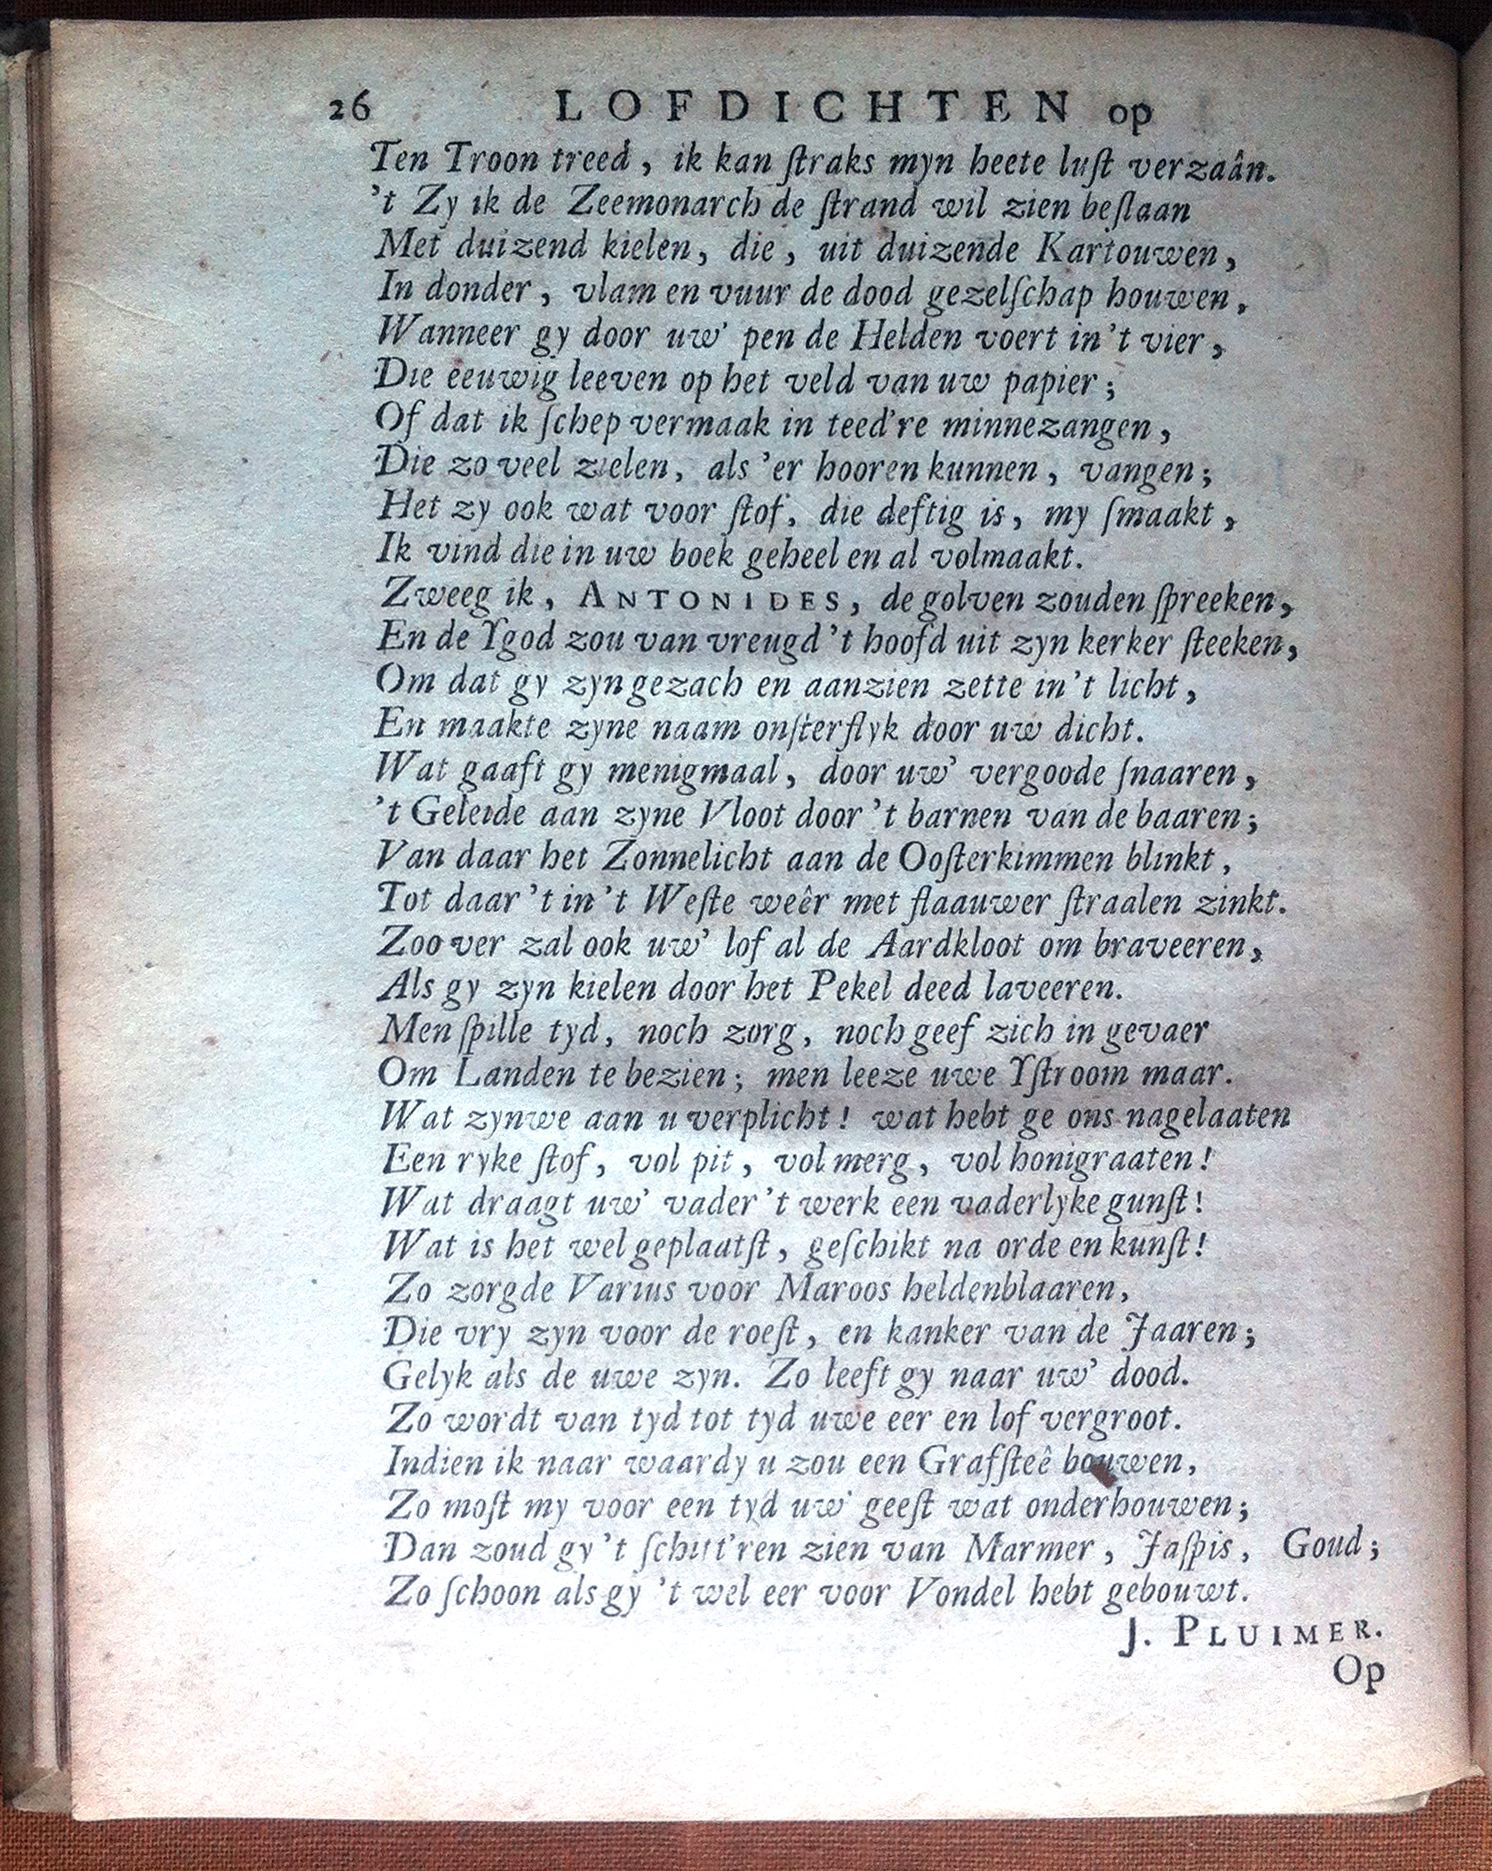 26 LOFDICHTEN op
Ten Troon treed, ik kan ſtraks myn heete luſt verzaân.
't Zy ik de Zeemonarch de ſtrand wil zien beſlaan
Met duizend kielen, die, uit duizende Kartouwen,
In donder, vlam en vuur de dood gezelſchap houwen,
Wanneer gy door uw' pen de Helden voert in 't vier,
Die eeuwig leeven op het veld van uw papier;
Of dat ik ſchep vermaak in teed're minnezangen,
Die zo veel zielen, als 'er hooren kunnen, vangen;
Het zy ook wat voor ſtof, die deftig is, my ſmaakt,
Ik vind die in uw boek geheel en al volmaakt.
Zweeg ik, ANTONIDES, de golven zouden ſpreeken,
En de Ygod zou van vreugd 't hoofd uit zyn kerker ſteeken,
Om dat gy zyn gezach en aanzien zette in 't licht,
En maakte zyne naam onſterflyk door uw dicht.
Wat gaaft gy menigmaal, door uw' vergoode ſnaaren,
't Geleide aan zyne Vloot door 't barnen van de baaren;
Van daar het Zonnelicht aan de Ooſterkimmen blinkt,
Tot daar 't in 't Weſte weêr met flaauwer ſtraalen zinkt.
Zoo ver zal ook uw' lof al de Aardkloot om braveeren,
Als gy zyn kielen door het Pekel deed laveeren.
Men ſpille tyd, noch zorg, noch geef zich in gevaer
Om Landen te bezien; men leeze uwe Yſtroom maar.
Wat zyn we aan u verplicht! wat hebt ge ons nagelaaten
Een ryke ſtof, vol pit, vol merg, vol honigraaten!
Wat draagt uw' vader 't werk een vaderlyke gunſt!
Wat is het wel geplaatſt, geſchikt na orde en kunſt!
Zo zorgde Varius voor Maroos heldenblaaren,
Die vry zyn voor de roeſt, en kanker van de Jaaren;
Gelyk als de uwe zyn. Zo leeft gy naar uw' dood.
Zo wordt van tyd tot tyd uwe eer en lof vergroot.
Indien ik naar waardy u zou een Grafſteê bouwen,
Zo moſt my voor een tyd uw' geeſt wat onderhouwen;
Dan zoud gy 't ſchitt'ren zien van Marmer, Jaſpis, Goud;
Zo ſchoon als gy 't wel eer voor Vondel hebt gebouwt.
J. PLUIMER.
Op